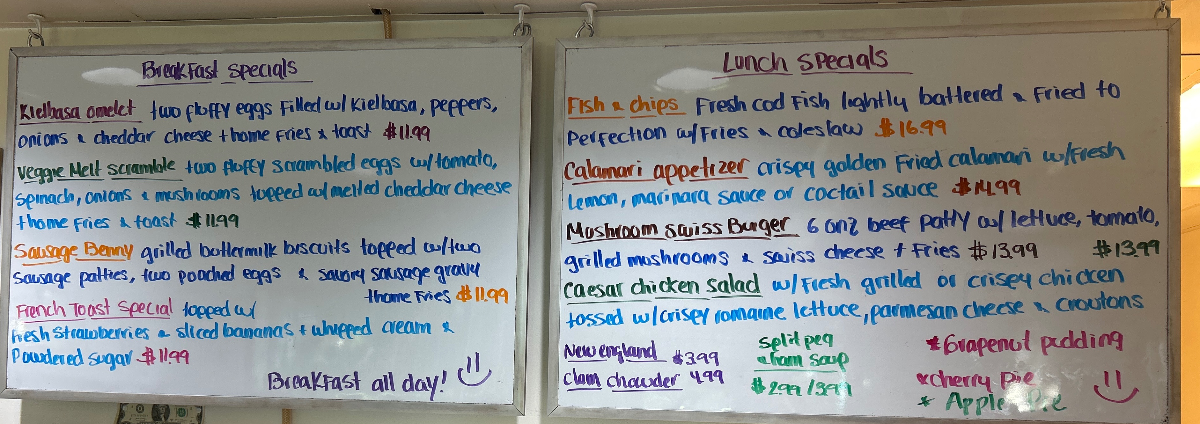 Breakfast specials
Kielbasa omelet two fluffy eggs filled w/ Kielbasa, peppers,
onions & cheddar cheese + home fries & toast $11.99
Veggie Melt scramble two fluffy scrambled eggs w/ tomato,
spinach, onions & mushrooms topped w/ melted cheddar cheese
+ home fries & toast $11.99
Sausage Benny grilled buttermilk biscuits topped w/ two
sausage patties, two poached eggs & savory sausage gravy
+ home fries $11.99
French Toast special topped w/
fresh strawberries & sliced bananas + whipped cream &
Powdered sugar $11.99
Breakfast all day!
Lunch specials
Fish & chips Fresh cod fish lightly battered & fried to
perfection w/ fries & coleslaw $16.99
Calamari appetizer crispy golden fried calamari w/ fresh
lemon, marinara sauce or coctail sauce $14.99
Mushroom swiss Burger 6 onz beef patty w/ lettuce, tomato,
grilled mushrooms & swiss cheese + fries $13.99 $13.99
Caesar chicken salad w/ fresh grilled or crisey chicken
tossed w/ crisey romaine lettuce, parmesan cheese & croutons
New england $3.99
clam chowder 4.99
split pea
& ham soup
$2.99 / 3.99
* Grapenut pudding
* cherry pie
* Apple Pie